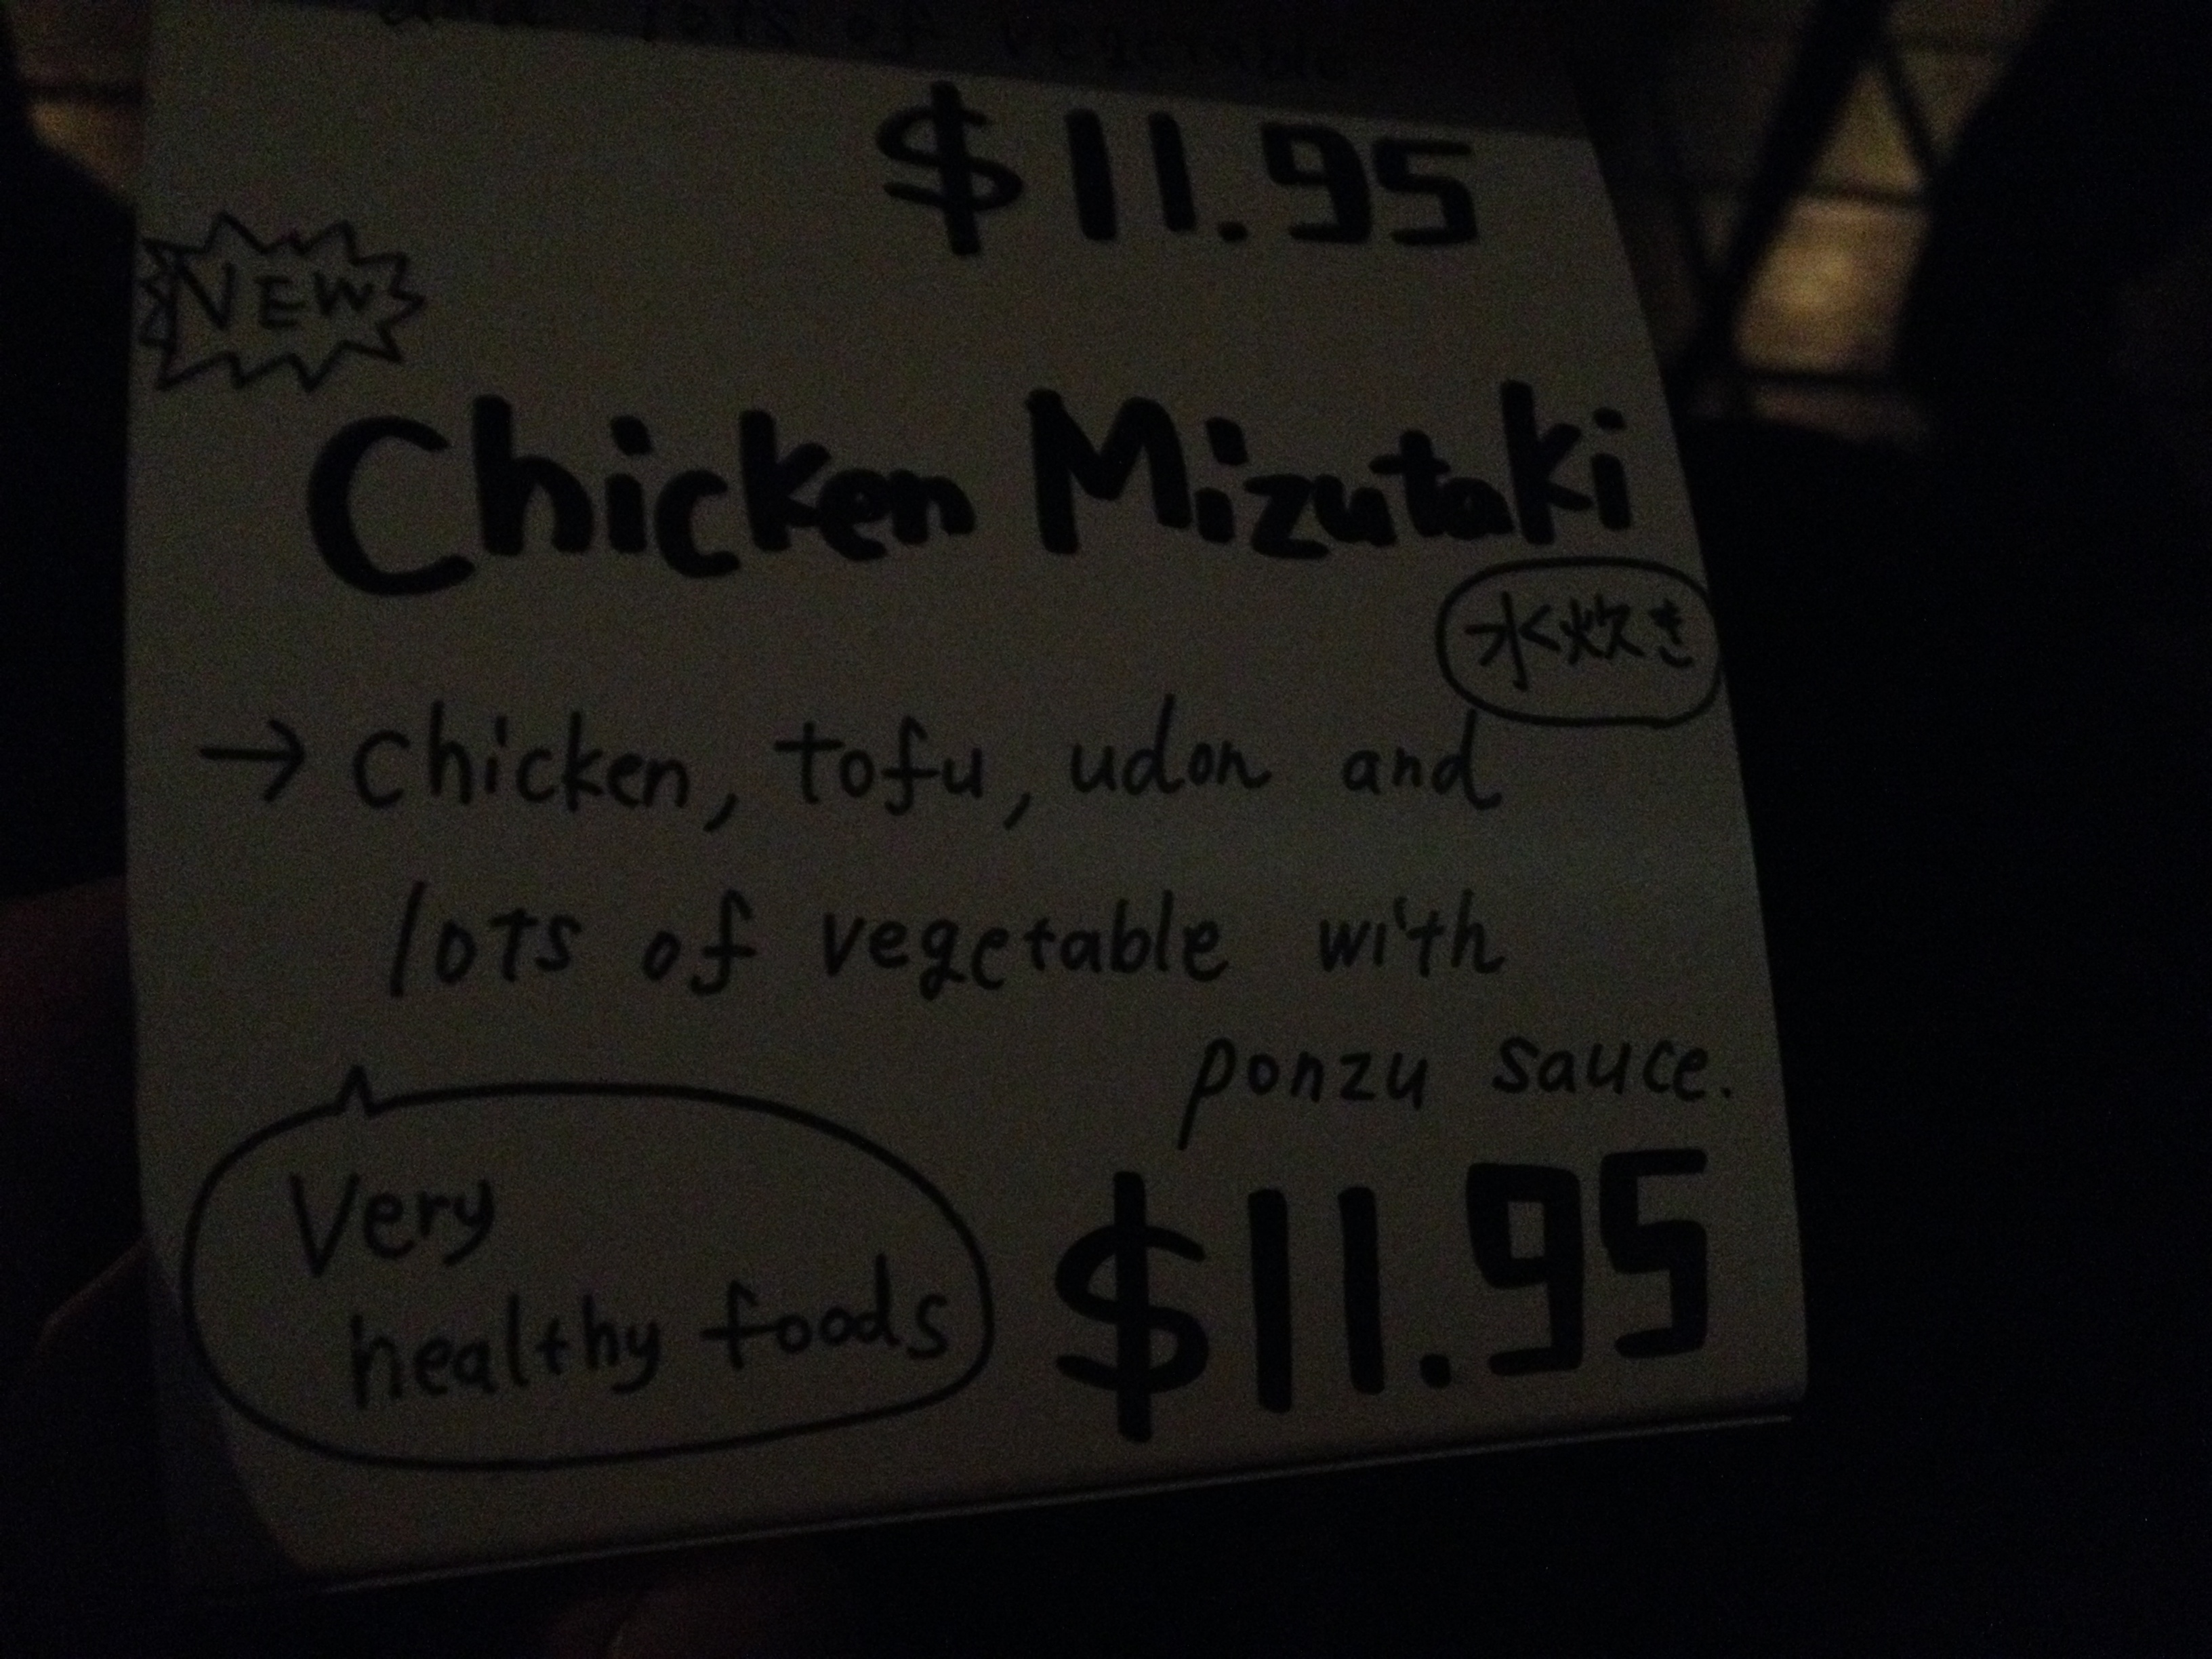 and lots of vegetable
$11.95
NEW
Chicken Mizutaki
水炊き
→ Chicken, tofu, udon and
lots of vegetable with
ponzu sauce.
Very
healthy foods
$11.95